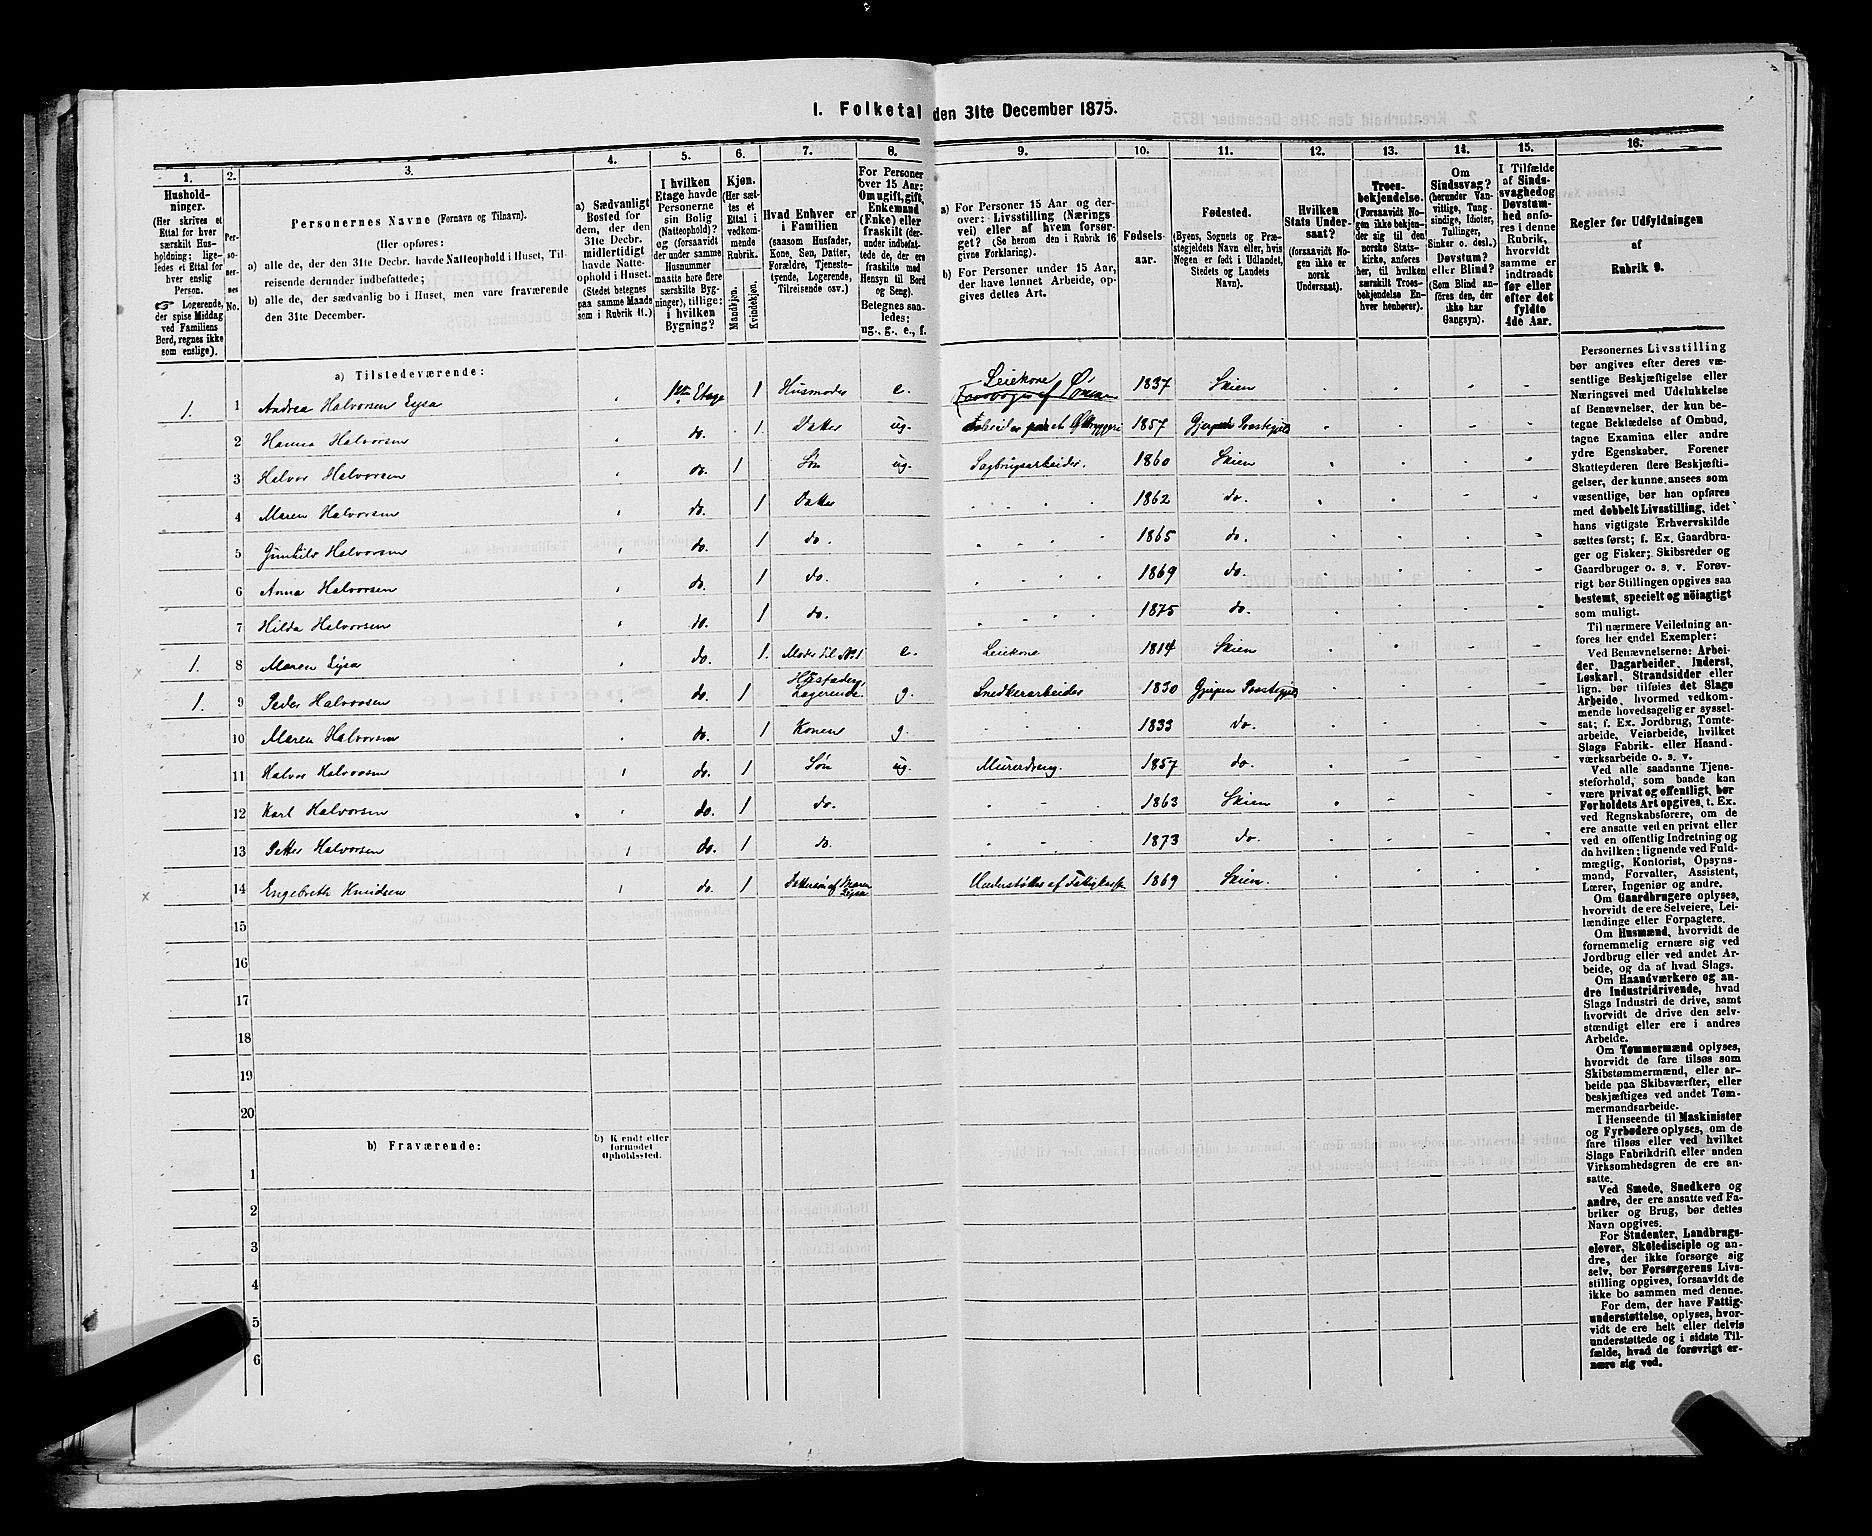 I. Folketal den 31te December 1875.
1. 2. 3. 4. 5. 6. 7. 8. 9. 10. 11. 12. 13. 14. 15. 16.
Husholdninger.
(Her skrives et
Ettal for hver
særskilt Husholdning;
ligeledes et Ettal for
hver enslig
Person.
☞ Logerende,
der spise Middag
ved Familiens
Bord, regnes ikke
som enslige).
Personernes No.
Personernes Navne (Fornavn og Tilnavn).
(Her opføres:
a) alle de, der den 31te Decbr. havde Natteophold i Huset, Tilreisende derunder indbefattede;
b) alle de, der sædvanlig bo i Huset, men vare fraværende
den 31te December.
a) Sædvanligt
Bosted for
dem, der den
31te Decbr.
midlertidigt
havde Natteophold i Huset.
(Stedet betegnes
paa samme Maade
som i Rubrik 11.)
I hvilken
Etage havde
Personerne
sin Bolig
(Natteophold)?
og (forsaavidt
der under samme
Husnummer
maatte høre flere
særskilte Bygninger), tillige:
i hvilken
Bygning?
Kjøn.
(Her sættes et
Ettal i
vedkommende
Rubrik.
Mandkjøn.
Kvindekjøn.
Hvad Enhver er
i Familien
(saasom Husfader,
Kone, Søn, Datter,
Forældre, Tjenestetyende, Logerende,
Tilreisende osv.)
For Personer
over 15 Aar:
Om ugift, gift,
Enkemand
(Enke) eller
fraskilt (derunder indbefattede de, der ere
fraskilte med
Hensyn til Bord
og Seng).
Betegnes saaledes:
ug., g., e., f.
a) For Personer 15 Aar og derover: Livsstilling (Næringsvei) eller af hvem forsørget? (Se herom den i Rubrik 16
givne Forklaring).
b) For Personer under 15 Aar,
der have lønnet Arbeide, opgives dettes Art.
Fødselsaar.
Fødested.
(Byens, Sognets og Præstegjeldets Navn eller, hvis
Nogen er født i Udlandet,
Stedets og Landets
Navn).
Hvilken
Stats Undersaat?
(forsaavidt Nogen ikke er
norsk
Undersaat).
Troesbekjendelse.
(Forsaavidt Nogen ikke bekjender sig til den
norske Statskirke, anføres
her, til hvilken
særskilt Troesbekjendelse Enhver henhører).
Om
Sindssvag?
(herunder Vanvittige, Tungsindige, Idioter,
Tullinger,
Sinker o. desl.)
Døvstum?
eller Blind?
(Som Blind anføres den, der
ikke har
Gangsyn).
I Tilfælde
af Sindssvaghed og
Døvstumhed anføres i denne
Rubrik,
hvorvidt
samme er
indtraadt
før eller
efter det
fyldte
4de Aar.
Regler for Udfyldningen
af
Rubrik 9.
a) Tilstedeværende:
1. 1 Andrea Halvorsen Lysa 1ste Etage 1 Husmoder e. Leiekone 1837 Skien
2 Hanna Halvorsen do. 1 Datter ug. Arbeider paa et Ølbryggeri 1857 Gjerpen Prestegjeld
3 Halvor Halvorsen do. 1 Søn ug. Sagbrugsarbeider. 1860 Skien
4 Maren Halvorsen do. 1 Datter 1862 do.
5 Gunhild Halvorsen do. 1 do. 1865 do.
6 Anna Halvorsen do. 1 do. 1869 do.
7 Hilda Halvorsen do. 1 do. 1875 do.
1. 8 Maren Lysa do. 1. Moder til No 1 e. Leiekone 1814 Skien
1. 9 Peder Halvorsen do. 1 Husfader, Logerende g. Snedkerarbeider 1830 Gjerpen Prestegjeld
10 Maren Halvorsen do. 1 Konen g. 1833 do.
11 Halvor Halvorsen do. 1 Søn ug. Murerdreng. 1857 do.
12 Karl Halvorsen do. 1 do. 1863 Skien
13 Petter Halvorsen do. 1 do. 1873 do.
x 14 Engebreth Knudsen do. 1 Dattersøn af Maren Lysa Understøttes af Fattigkassen 1869 Skien.
15
16
17
18
19
20
b) Fraværende:
b) Kjendt eller
formodet
Opholdssted.
1
2
3
4
5
6
Personernes Livsstilling
bør angives efter deres væsentlige Beskjæftigelse eller
Næringsvei med Udelukkelse
af Benævnelser, der kun betegne Beklædelse af Ombud,
tagne Examina eller andre
ydre Egenskaber. Forener
Skatteyderen flere Beskjæftigelser, der kunne ansees som
væsentlige, bør han opføres
med dobbelt Livsstilling, idet
hans vigtigste Erhvervskilde
sættes først; f. Ex. Gaardbruger og Fisker; Skibsreder og
Gaardbruger o. s. v. Forøvrigt bør Stillingen opgives saa
bestemt, specielt og nöiagtigt
som muligt.
Til nærmere Veiledning anføres her endel Exempler:
Ved Benævnelserne: Arbeider, Dagarbeider, Inderst,
Løskarl, Strandsidder eller
lign. bør tilføies det Slags
Arbeide, hvormed vedkommende hovedsagelig er sysselsat; f. Ex. Jordbrug, Tomtearbeide, Veiarbeide, hvilket
Slags Fabrik- eller Haandværksarbeide o. s. v.
Ved alle saadanne Tjenesteforhold, som baade kan
være privat og offentligt, bør
Forholdets Art opgives, t. Ex.
ved Regnskabsførere, om de
ere ansatte ved en privat eller
ved en offentlig Indretning og
da hvilken; lignende ved Fuldmæglig, Kontorist, Opsynsmand, Forvalter, Assistent,
Lærer, Ingeniør og andre.
Om Gaardbrugere oplyses,
hvorvidt de ere Selveiere, Leilændinge eller Forpagtere.
Om Husmænd, hvorvidt de
fornemmelig ernære sig ved
Jordbrug eller ved andet Arbeide, og da af hvad Slags.
Om Haandværkere og andre Industridrivende, hvad
Slags Industri de drive, samt
hvorvidt de drive den selvstændigt eller ere i andres
Arbeide.
Om Tømmermænd oplyses,
hvorvidt de fare tilsøs som
Skibstømmermænd, eller arbeide paa Skibsværfter, eller
beskjæftiges ved andet Tømmermandsarbeide.
I Henseende til Maskinister
og Fyrbødere oplyses, om de
fare tilsøs eller ved hvilket
Slags Fabrikdrift eller anden
Virksomhedsgren de ere ansatte.
Ved Smede, Snedkere og
andre, der ere ansatte ved Fabriker og Brug, bør dettes
Navn opgives.
For Studenter, Landbrugselever, Skoledisciple og andre, der ikke forsørge sig
selv, bør Forsørgerens Livsstilling opgives, forsaavidt de
ikke bo sammen med denne.
For dem, der have Fattigunderstøttelse, oplyses, hvorvidt de ere helt eller delvis
understøttede og i sidste Tilfælde, hvad de forøvrigt ernære sig ved.